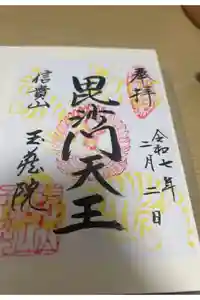 奉拝
令和七年
二月二日
毘沙門天王
信貴山
玉蔵院